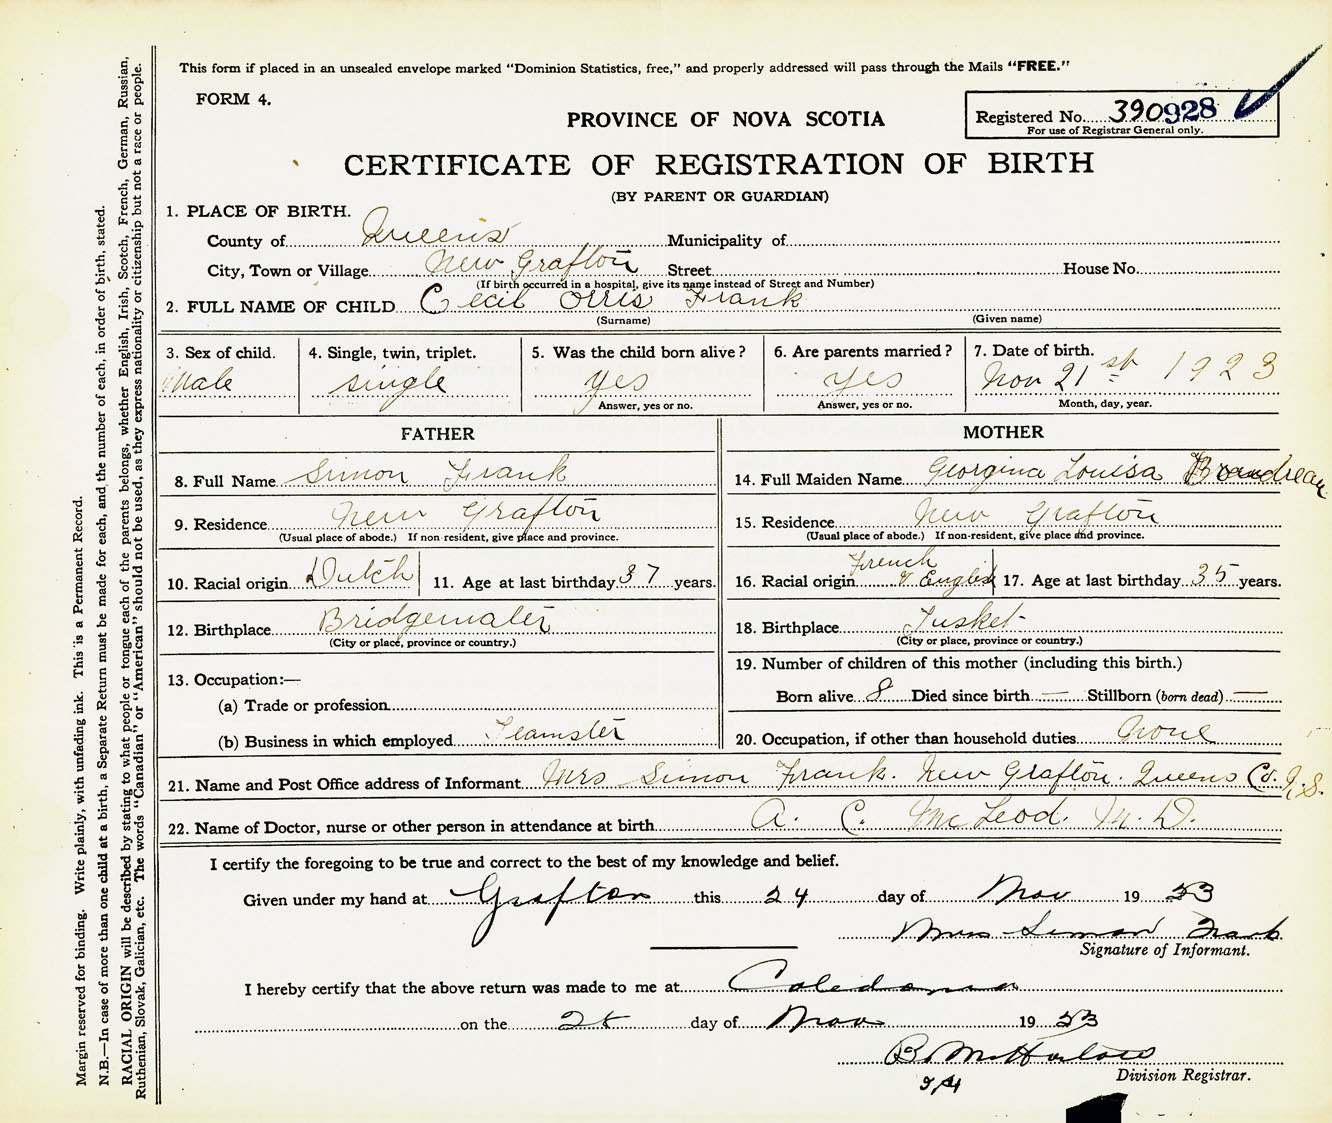 This form if placed in an unsealed envelope marked "Dominion Statistics, free," and properly addressed will pass through the Mails "FREE."
FORM 4.
Registered No. 390928
For use of Registrar General only.
PROVINCE OF NOVA SCOTIA
CERTIFICATE OF REGISTRATION OF BIRTH
(BY PARENT OR GUARDIAN)
1. PLACE OF BIRTH.
County of Queens Municipality of
City, Town or Village New Grafton Street House No.
(If birth occurred in a hospital, give its name instead of Street and Number)
2. FULL NAME OF CHILD Cecil Orris Frank
(Surname) (Given name)
3. Sex of child. Male
4. Single, twin, triplet. single
5. Was the child born alive? yes
Answer, yes or no.
6. Are parents married? yes
Answer, yes or no.
7. Date of birth. Nov 21st 1923
Month, day, year.
FATHER
8. Full Name Simon Frank
9. Residence New Grafton
(Usual place of abode.) If non-resident, give place and province.
10. Racial origin Dutch 11. Age at last birthday 37 years.
12. Birthplace Bridgewater
(City or place, province or country.)
13. Occupation:—
(a) Trade or profession
(b) Business in which employed Teamster
MOTHER
14. Full Maiden Name Georgina Louisa
15. Residence New Grafton
(Usual place of abode.) If non-resident, give place and province.
16. Racial origin French & English 17. Age at last birthday 35 years.
18. Birthplace Tusket
(City or place, province or country.)
19. Number of children of this mother (including this birth.)
Born alive 8 Died since birth — Stillborn (born dead) —
20. Occupation, if other than household duties None
21. Name and Post Office address of Informant Mrs Simon Frank. New Grafton. Queens Co. N.S.
22. Name of Doctor, nurse or other person in attendance at birth A. C. McLeod. M. D.
I certify the foregoing to be true and correct to the best of my knowledge and belief.
Given under my hand at Grafton this 24 day of Nov 19 23
Mrs Simon Frank
Signature of Informant.
I hereby certify that the above return was made to me at Caledonia
on the 25 day of Nov 19 23
Division Registrar.
Margin reserved for binding. Write plainly, with unfading ink. This is a Permanent Record.
N.B.—In case of more than one child at a birth, a Separate Return must be made for each, and the number of each, in order of birth, stated.
RACIAL ORIGIN will be described by stating to what people or tongue each of the parents belongs, whether English, Irish, Scotch, French, German, Russian,
Ruthenian, Slovak, Galician, etc. The words "Canadian" or "American" should not be used, as they express nationality or citizenship but not a race or people.